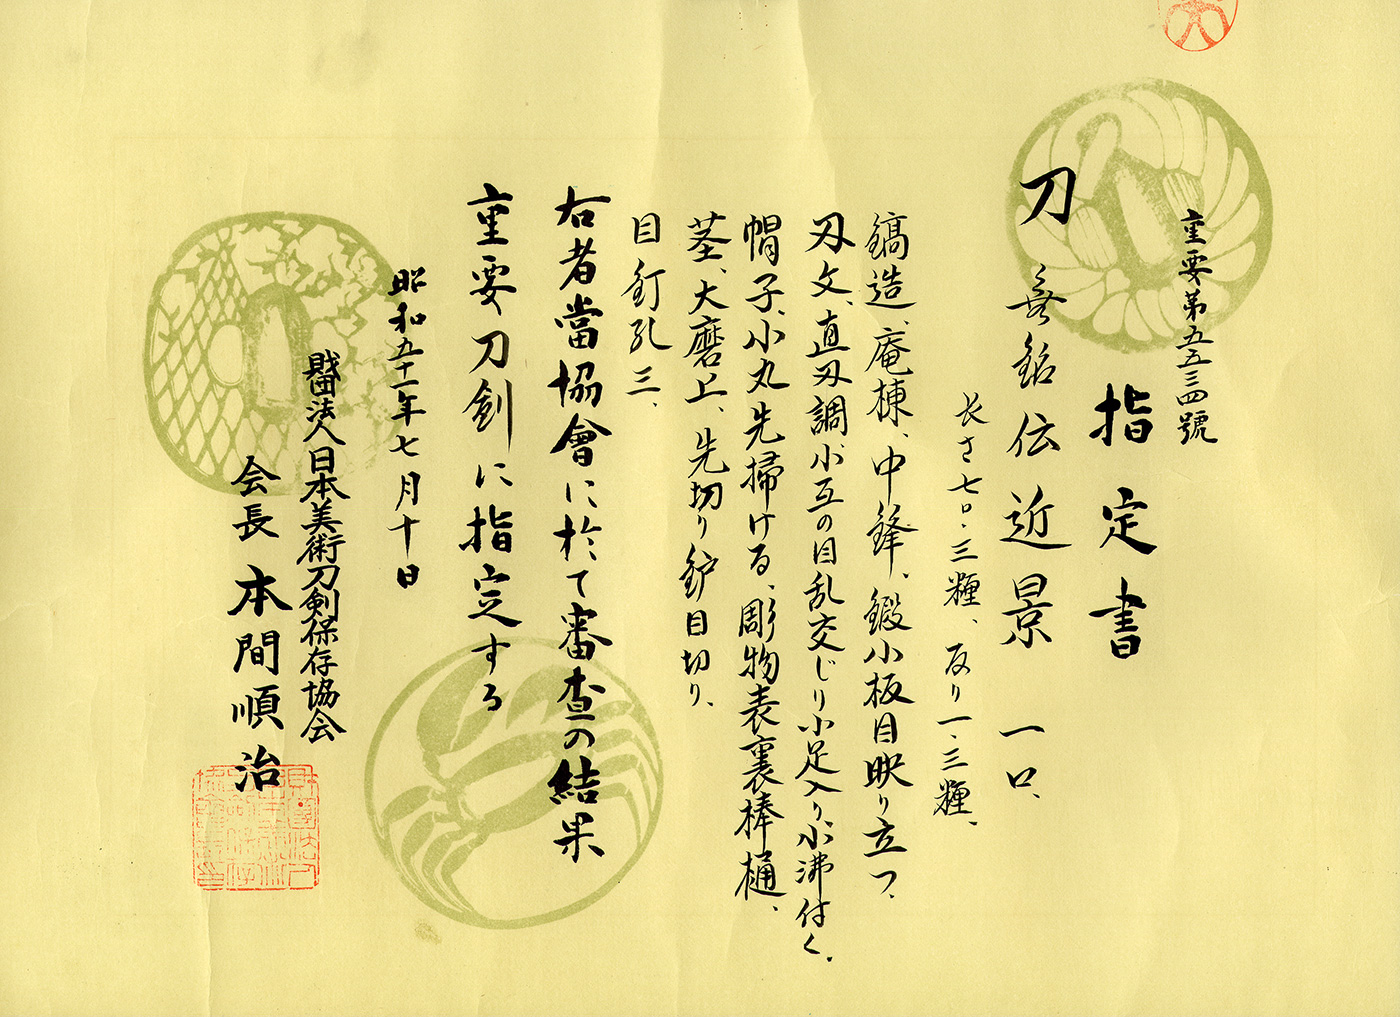 重要第五五三四號
指定書
刀 無銘伝近景 一口、
長さ七〇・三糎、反り一・三糎、
鎬造、庵棟、中鋒、鍛小板目映り立つ、
刃文、直刃調小互の目乱交じり小足入り、小沸付く、
帽子、小丸先掃ける、彫物表裏棒樋、
茎、大磨上、先切り鈩目切り、
目釘孔三、
右者當協會に於て審査の結果
重要刀剣に指定する
昭和五十一年七月十日
財団法人日本美術刀剣保存協会
会長 本間順治